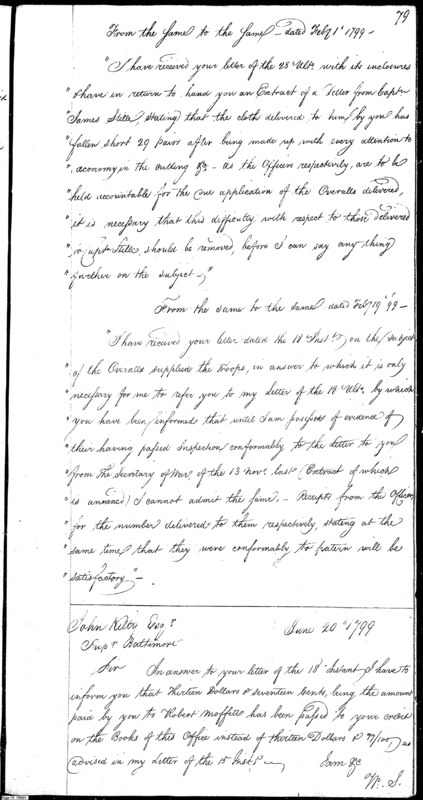 79
From the same to the same – dated Feby 1st 1799 –
"I have received your letter of the 28 Ulto. with its inclosures
"& have in return to hand you an Extract of a Letter from Capt.
"James Stille, stating that the cloth delivered to him by you has
"fallen short 29 pairs after being made up with every attention to
"œconomy in the cutting &c – as the Officers respectively, are to be
"held accountable for the due application of the Overalls delivered,
"it is necessary that this difficulty with respect to those delivered
"to Capt. Stille should be removed, before I can say any thing
"further on the subject –"
From the same to the same dated Feby 19th 99 –
"I have received your letter dated the 18 Inst. on the subject
"of the Overalls supplied the Troops, in answer to which it is only
"necessary for me to refer you to my Letter of the 18 Ulto. by which
"you have been informed that until I am possessed of evidence of
"their having passed Inspection conformably to the letter to you
"from the Secretary of War, of the 13 Novr. last (Extract of which
"is annexed) I cannot admit the same. – Receipts from the Officers
"for the number delivered to them respectively, stating at the
"same time that they were conformably to pattern will be
"satisfactory" –
John Kilty Esqr. June 20th 1799
Supr. Baltimore
Sir In answer to your letter of the 18 Instant, I have to
inform you that Thirteen Dollars & seventeen Cents, being the amount
paid by you to Robert Moffett has been passed to your credit
on the Books of this Office instead of thirteen Dollars & 77/100, as
advised in my Letter of the 15 Inst.
I am &c
W. S.